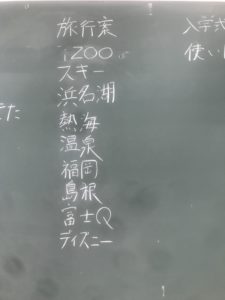 旅行案
iZOO
スキー
浜名湖
熱海
温泉
福岡
島根
富士Q
ディズニー
入学式
使い
きた